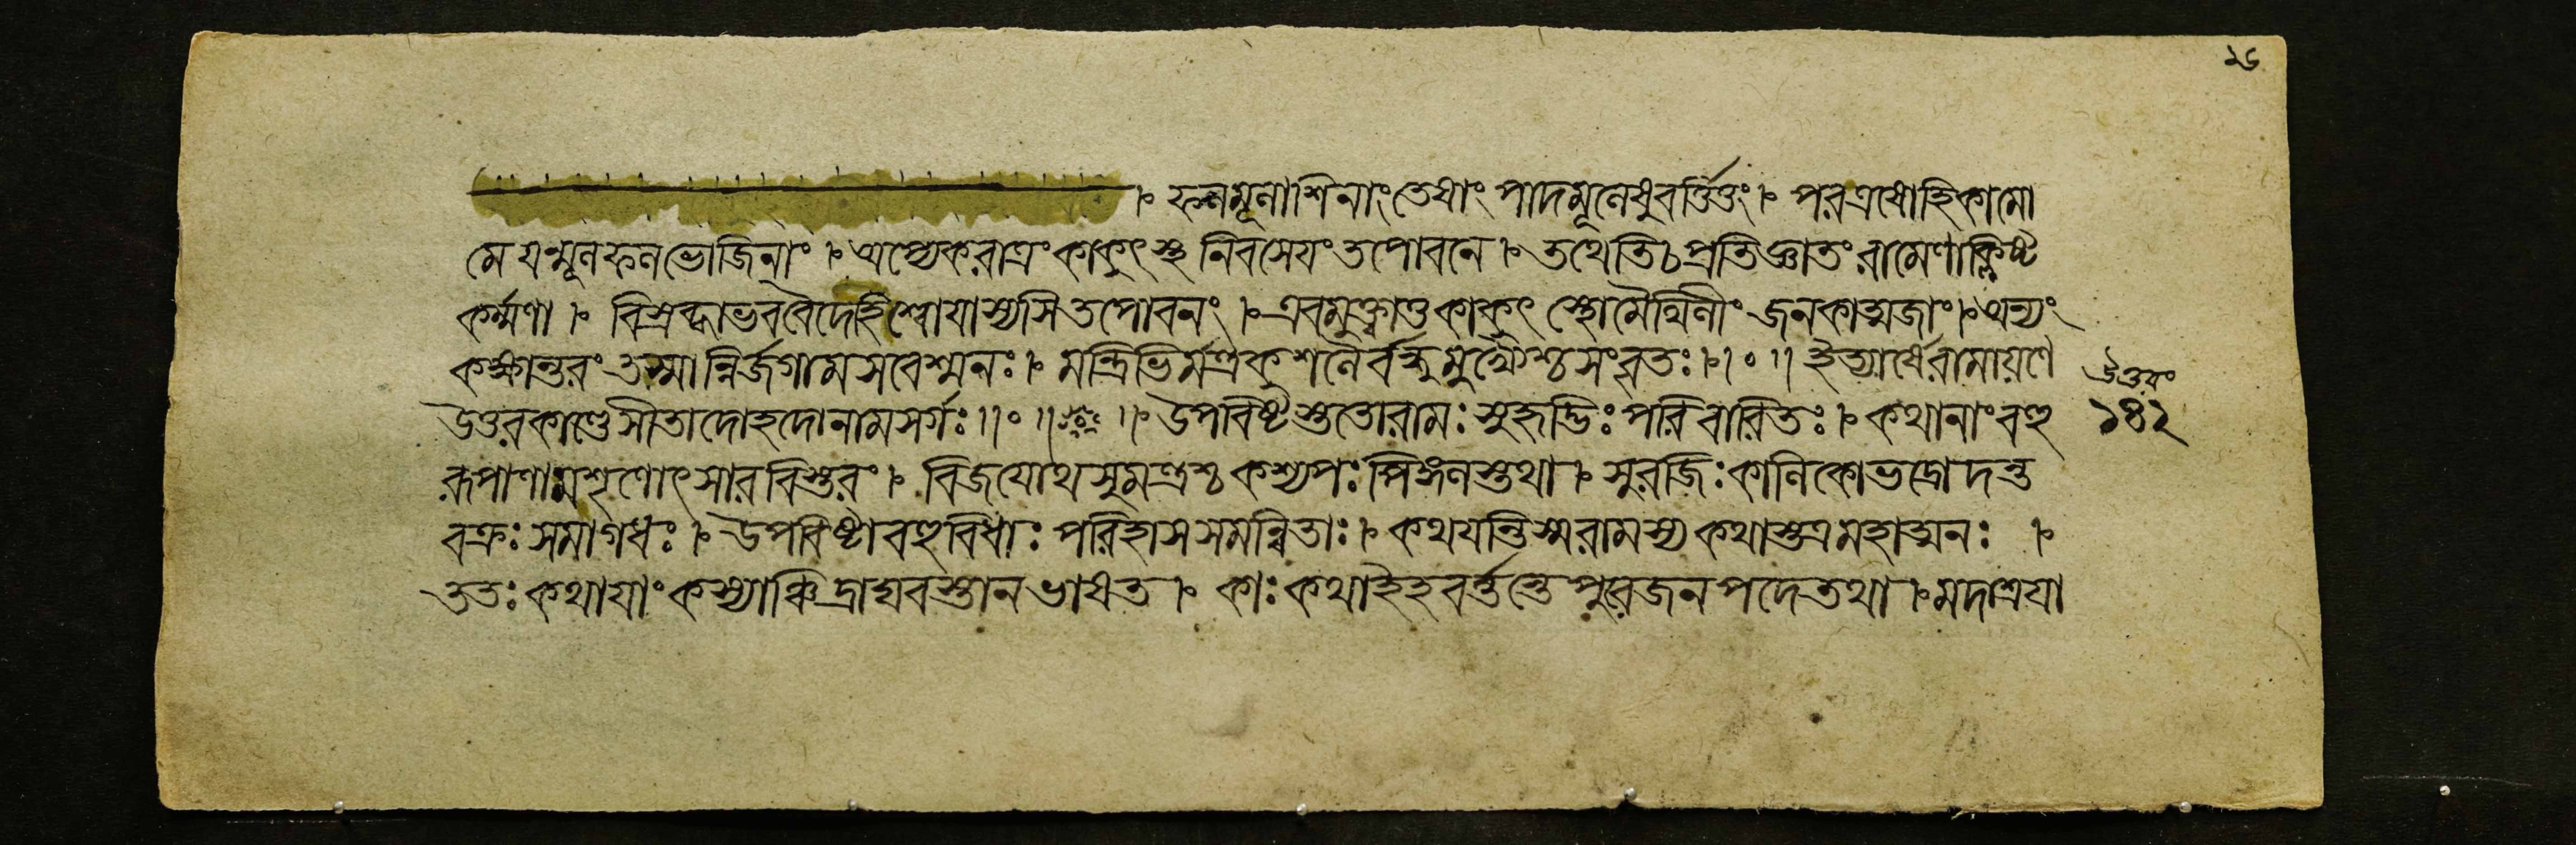 ২৬
। ফলমূলাশিনাং তেষাং পাদমূলেষু বর্ত্তিতুং । পর এষো হি কামো
মে যন্মূলফলভোজিনাং । অপ্যেকরাত্রং কাকুৎস্থ নিবসেয়ং তপোবনে । তথেতি চ প্রতিজ্ঞাতং রামেণাক্লিষ্ট
কর্ম্মণা । বিস্রব্ধা ভব বৈদেহি শ্বো যাস্যসি তপোবনং । এবমুক্ত্বা তু কাকুৎস্থো মৈথিলীং জনকাত্মজাং । অন্যং
কক্ষান্তরং তস্মান্নির্জগাম স বেশ্মনঃ । মন্ত্রিভির্মন্ত্রকুশলৈর্বহুমুখ্যৈশ্চ সংবৃতঃ ।।০।। ইত্যার্ষে রামায়ণে
উত্তরকাণ্ডে সীতাদোহদো নাম সর্গঃ ।।০।। ।। উপবিষ্টস্ততো রামঃ সুহৃদ্ভিঃ পরিবারিতঃ । কথানাং বহু
রূপাণামশৃণোৎ সারবিস্তরং । বিজয়োথ সুমন্ত্রশ্চ কশ্যপঃ পিঙ্গলস্তথা । সুরজিঃ কালিকো ভদ্রো দন্ত
বক্রঃ সমাগধঃ । উপবিষ্টা বহুবিধাঃ পরিহাসসমন্বিতাঃ । কথয়ন্তি স্ম রামস্য কথাস্তত্র মহাত্মনঃ ।
ততঃ কথায়াং কস্যাঞ্চিদ্রাঘবস্তানভাষত । কাঃ কথা ইহ বর্ত্তন্তে পুরে জনপদে তথা । মদাশ্রয়া
উত্তরং
১৪২